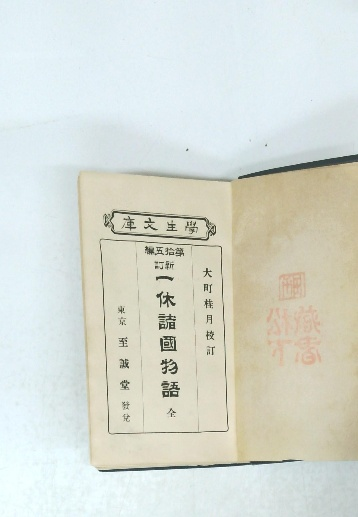 學生文庫
大町桂月校訂
第拾五編
新訂
一休諸國物語 全
東京 至誠堂 發兌